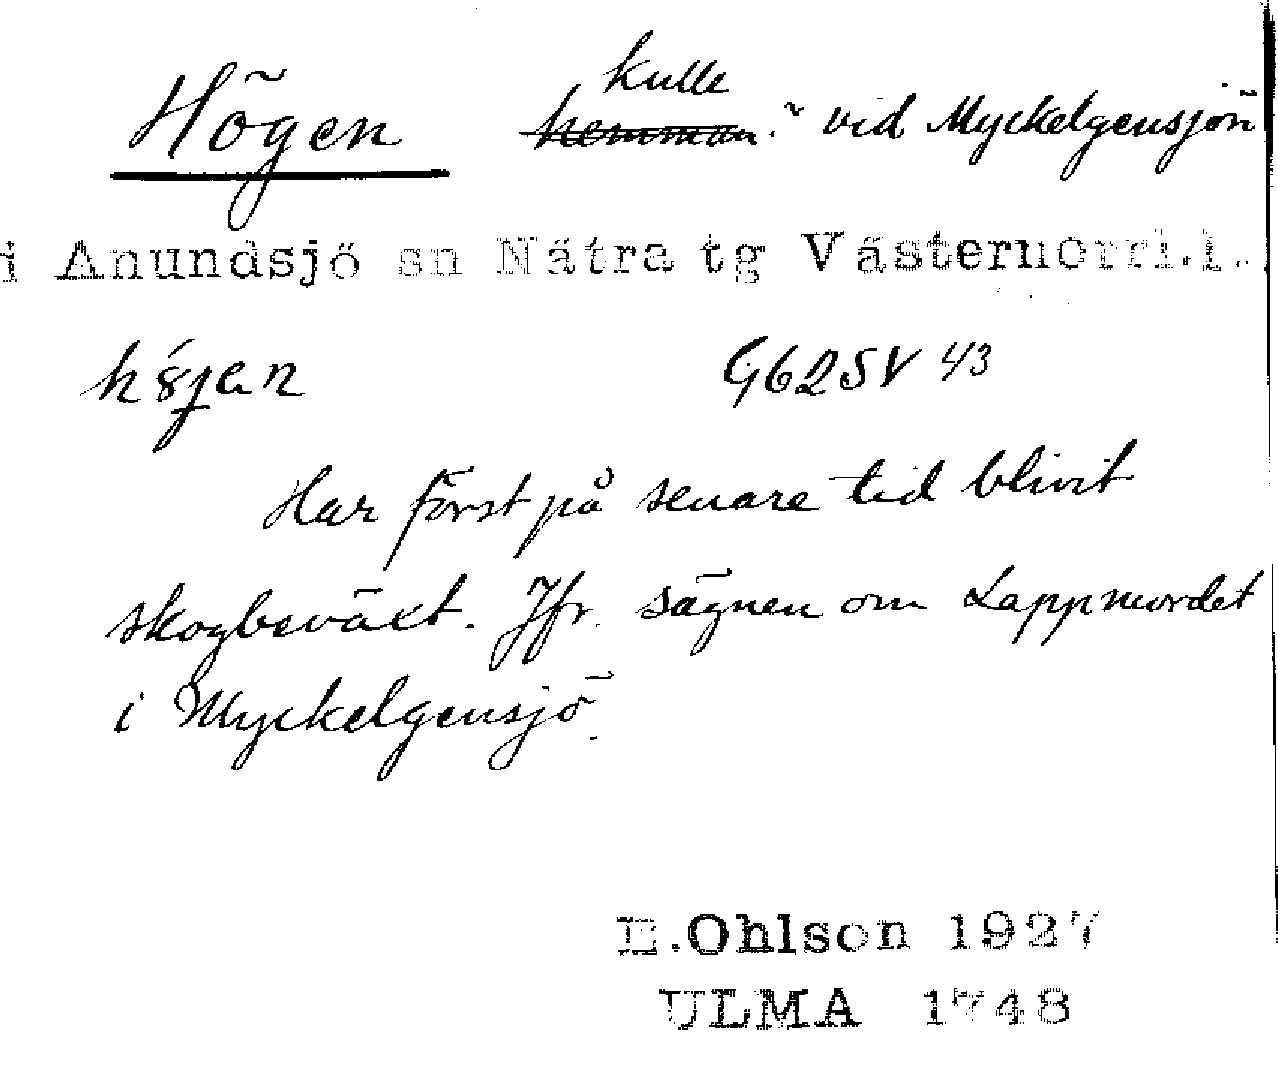 Högen kulle vid Myckelgensjön
i Anundsjö sn Nätra tg Västernorrl.l.
G62SV 43
Har först på senare tid blivit
skogbeväxt. Jfr. sägnen om Lappmordet
i Myckelgensjö.
E.Ohlson 1927
ULMA 1748